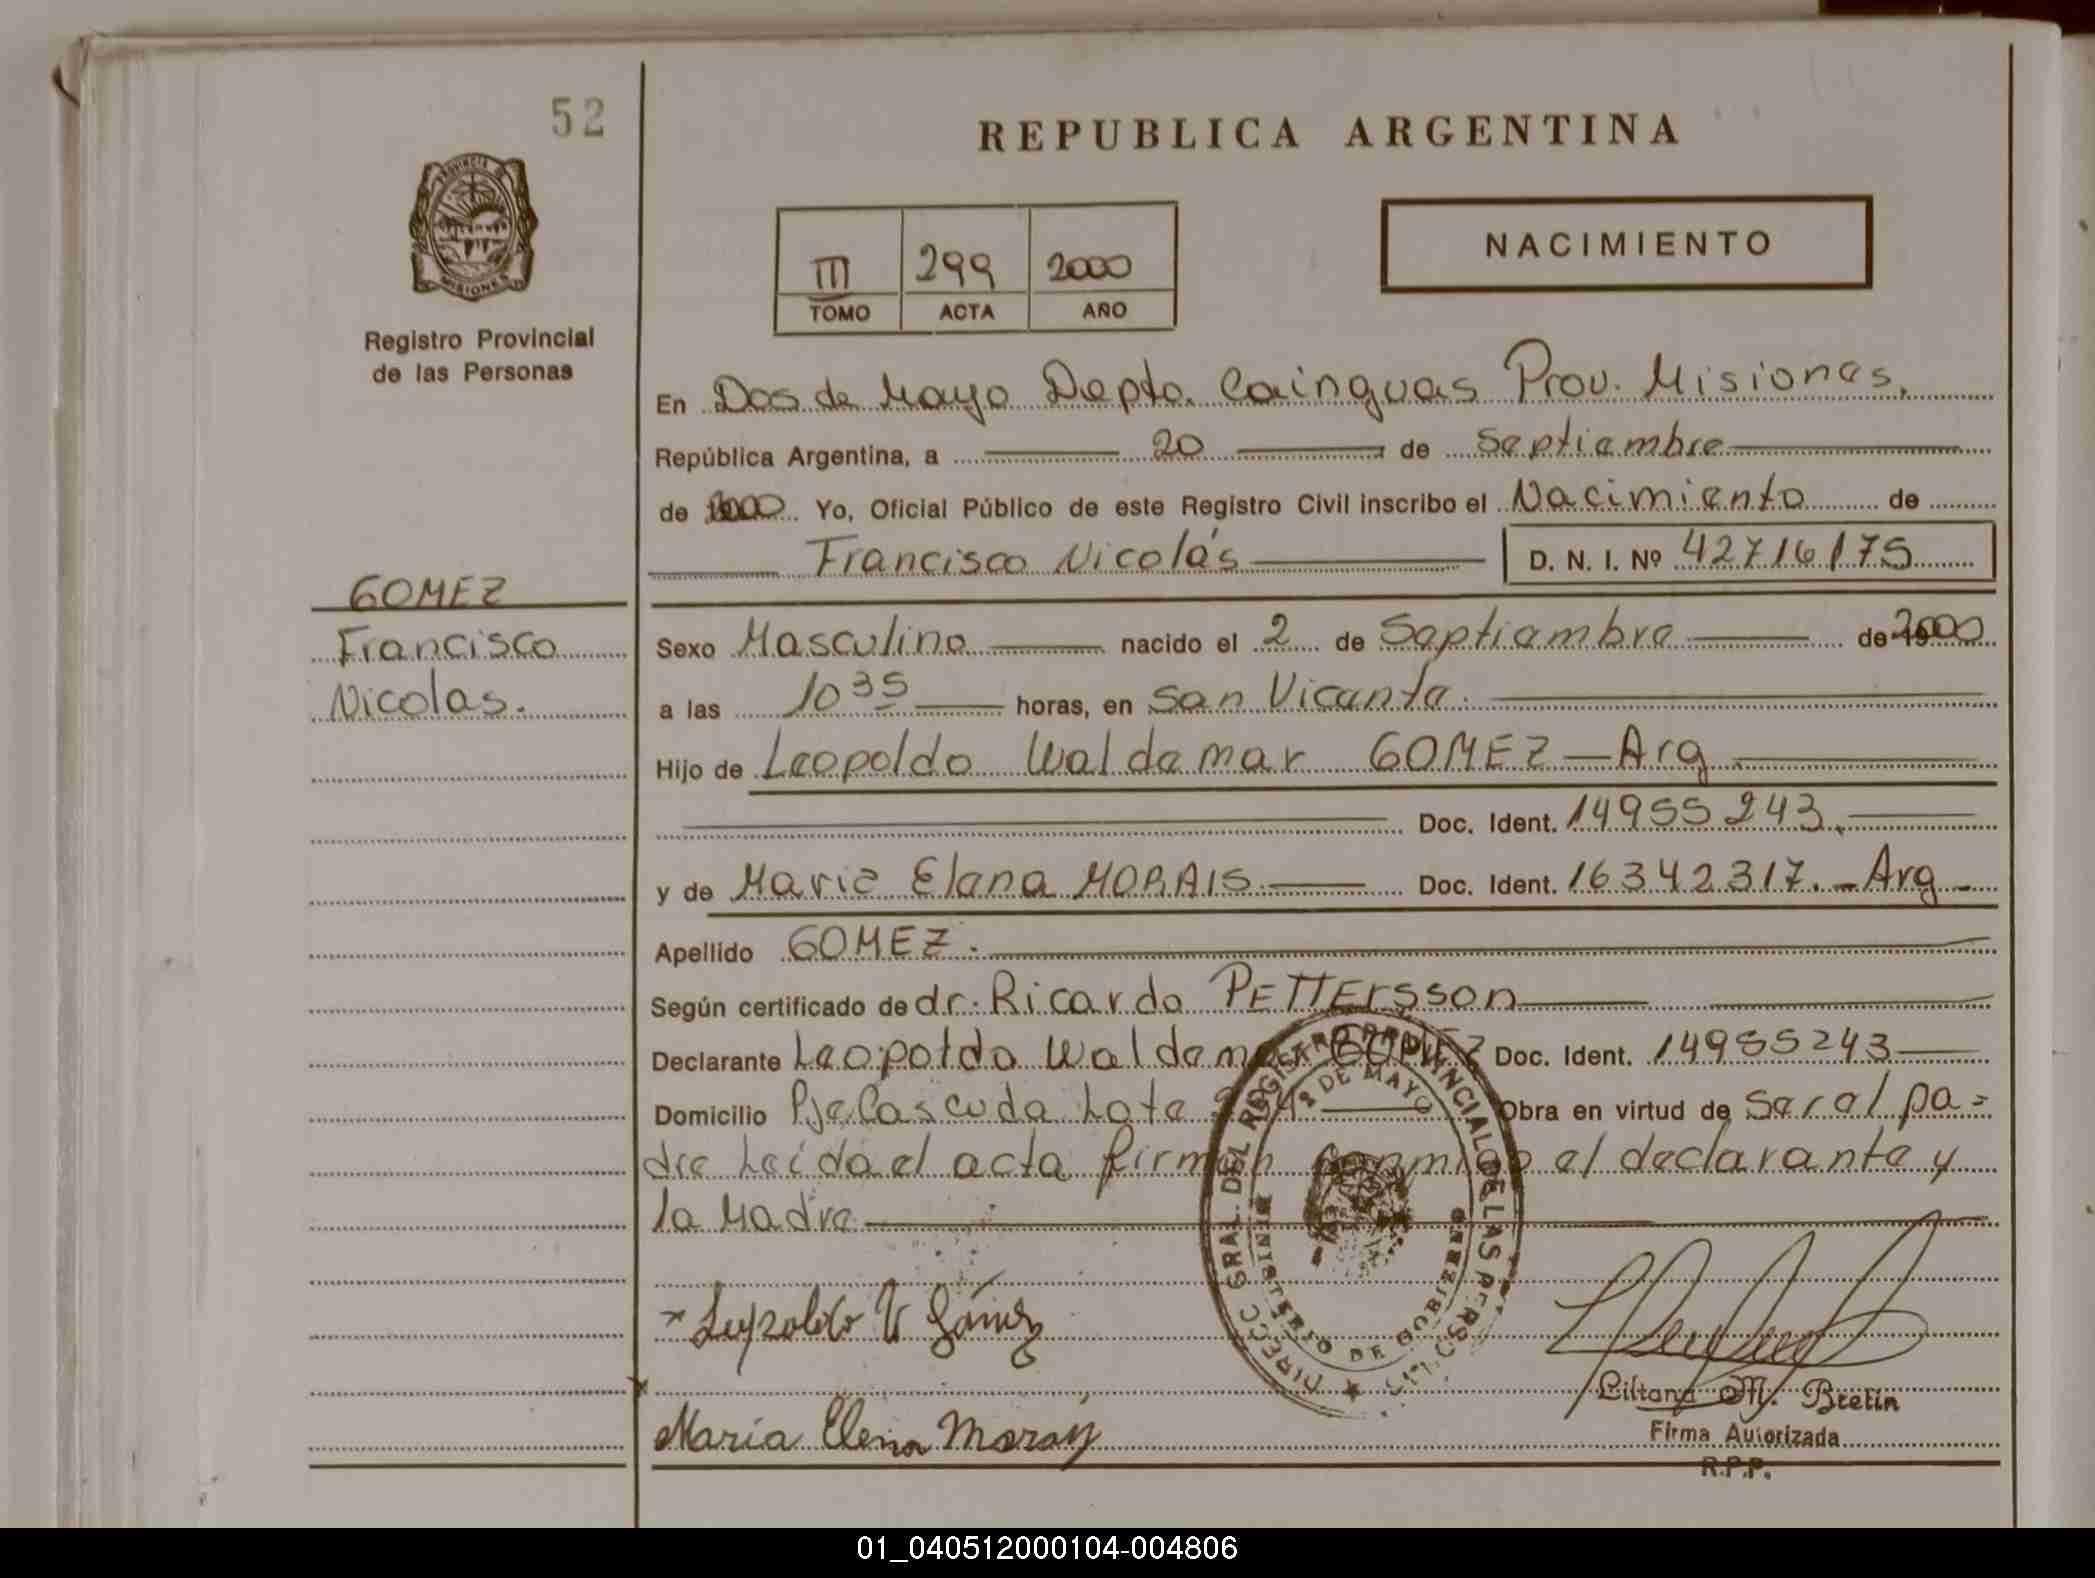 52
REPUBLICA ARGENTINA
PROVINCIA DE
MISIONES
Registro Provincial
de las Personas
NACIMIENTO
III 299 2000
TOMO ACTA AÑO
En Dos de Mayo Depto. Cainguas Prov. Misiones.
República Argentina, a 20 de Septiembre
de 2000 Yo, Oficial Público de este Registro Civil inscribo el Nacimiento de
Francisco Nicolás D. N. I. Nº 42716175
GOMEZ
Francisco
Nicolas.
Sexo Masculino nacido el 2 de Septiembre de 2000
a las 10 35 horas, en San Vicente.
Hijo de Leopoldo Waldemar GOMEZ - Arg
Doc. Ident. 14955243.
y de Maria Elena MORAIS Doc. Ident. 16342317. - Arg -
Apellido GOMEZ.
Según certificado de dr. Ricardo PETTERSSON
Declarante Leopoldo Waldemar GOMEZ Doc. Ident. 14955243
Domicilio Pje Cascuda Lote Obra en virtud de Ser el pa=
dre Leída el acta firman conmigo el declarante y
la Madre
DIRECC. GRAL. DEL REGISTRO PROVINCIAL DE LAS PERS.
2 DE MAYO
MINISTERIO DE GOBIERNO
Leopoldo W Gómez
Maria Elena Moraiz
Liliana M. Bretin
Firma Autorizada
R.P.P.
01_040512000104-004806